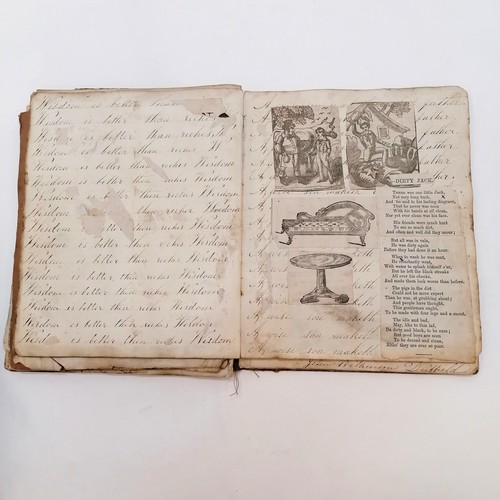 Wisdom is better
Wisdom is better than riches
Wisdom is better than riches W
Wisdom is better than riches W
Wisdom is better than riches Wisdom
Wisdom is better than riches Wisdom
Wisdom is better than riches Wisdom
Wisdom is better than riches Wisdom
Wisdom is better than riches Wisdom
Wisdom is better than riches Wisdom
Wisdom is better than riches Wisdom
Wisdom is better than riches Wisdom
Wisdom is better than riches Wisdom
Wisdom is better than riches Wisdom
Wisdom is better than riches
Wisdom is better than riches Wisdom
A father
A father
A father
A father
A father
A
DIRTY JACK.
THERE was one little Jack,
Not very long back,
And 'tis said to his lasting disgrace,
That he never was seen
With his hands at all clean,
Nor yet ever clean was his face.
His friends were much hurt
To see so much dirt,
And often and well did they scour;
But all was in vain,
He was dirty again
Before they had done it an hour.
When to wash he was sent,
He reluctantly went,
With water to splash himself o'er,
But he left the black streaks
All over his cheeks,
And made them look worse than before.
The pigs in the dirt
Could not be more expert
Than he was, at grubbing about;
And people have thought
This gentleman ought
To be made with four legs and a snout.
The idle and bad,
May, like to this lad,
Be dirty and black, to be sure;
But good boys are seen
To be decent and clean,
Altho' they are ever so poor.
A wise son maketh
A wise son maketh
A wise son maketh
A wise son maketh